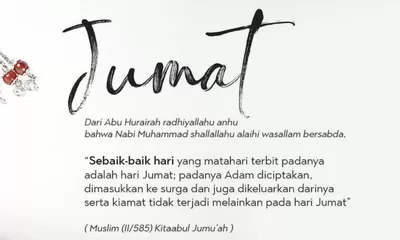 Jumat
Dari Abu Hurairah radhiyallahu anhu
bahwa Nabi Muhammad shallallahu alaihi wasallam bersabda,
“Sebaik-baik hari yang matahari terbit padanya
adalah hari Jumat; padanya Adam diciptakan,
dimasukkan ke surga dan juga dikeluarkan darinya
serta kiamat tidak terjadi melainkan pada hari Jumat”
( Muslim (II/585) Kitaabul Jumu'ah )